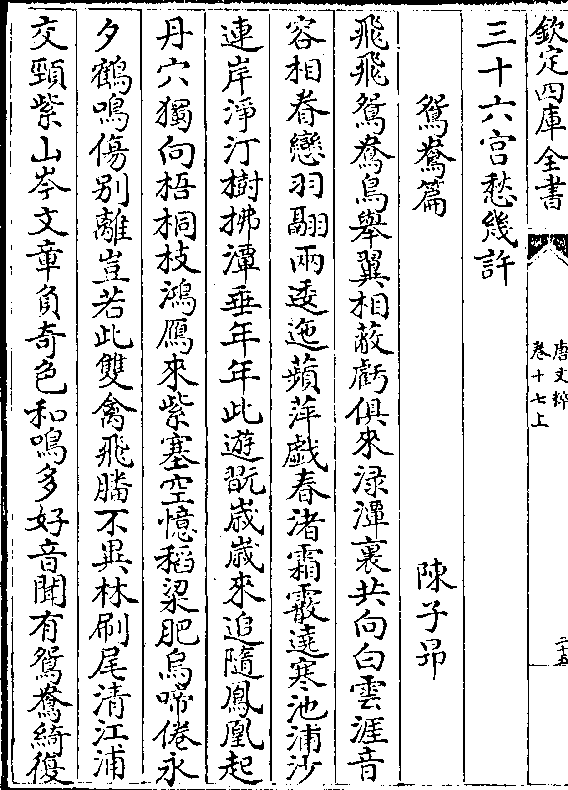 欽定四庫全書
唐文粹
卷十七上
二十五
三十六宫愁幾許
鴛鴦篇
陳子昂
飛飛鴛鴦鳥舉翼相蔽虧俱來渌潭裏共向白雲涯音
容相眷戀羽翮兩逶迤蘋萍戲春渚霜霰遶寒池浦沙
連岸淨汀樹拂潭垂年年此遊翫嵗嵗來追隨鳳凰起
丹穴獨向梧桐枝鴻鴈來紫塞空憶稻粱肥烏啼倦永
夕鶴鳴傷别離豈若此雙禽飛騰不異林刷尾清江浦
交頸紫山岑文章負奇色和鳴多好音聞有鴛鴦綺復